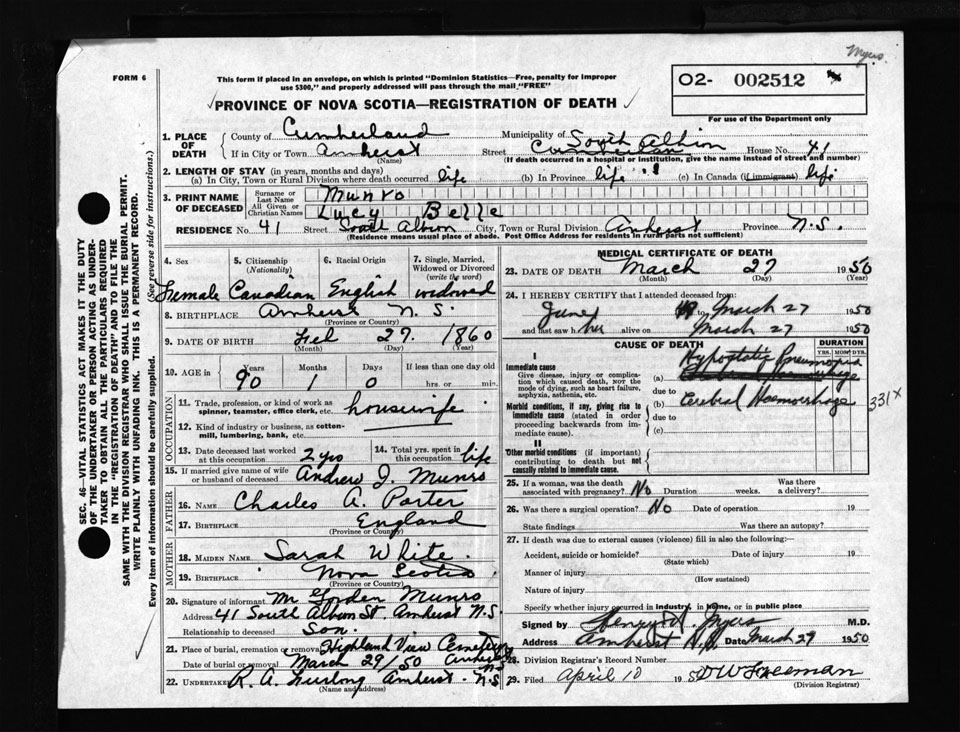 Myers
FORM 6
This form if placed in an envelope, on which is printed "Dominion Statistics—Free, penalty for improper
use $300," and properly addressed will pass through the mail "FREE"
O2- 002512
For use of the Department only
PROVINCE OF NOVA SCOTIA—REGISTRATION OF DEATH
SEC. 46—VITAL STATISTICS ACT MAKES IT THE DUTY
OF THE UNDERTAKER OR PERSON ACTING AS UNDER-
TAKER TO OBTAIN ALL THE PARTICULARS REQUIRED
IN THE "REGISTRATION OF DEATH" AND TO FILE THE
SAME WITH THE DIVISION REGISTRAR WHO SHALL ISSUE THE BURIAL PERMIT.
WRITE PLAINLY WITH UNFADING INK. THIS IS A PERMANENT RECORD.
Every item of information should be carefully supplied. (See reverse side for instructions.)
1. PLACE OF DEATH
County of Cumberland Municipality of
If in City or Town Amherst Street South Albion House No. 41
(Name) (If death occurred in a hospital or institution, give the name instead of street and number)
2. LENGTH OF STAY (in years, months and days)
(a) In City, Town or Rural Division where death occurred life (b) In Province life (c) In Canada (if immigrant) life
3. PRINT NAME OF DECEASED
Surname or Last Name Munro
All Given or Christian Names Lucy Belle
RESIDENCE No. 41 Street South Albion City, Town or Rural Division Amherst Province N.S.
(Residence means usual place of abode. Post Office Address for residents in rural parts not sufficient)
4. Sex
Female
5. Citizenship (Nationality)
Canadian
6. Racial Origin
English
7. Single, Married, Widowed or Divorced (write the word)
widowed
8. BIRTHPLACE Amherst N.S.
(Province or Country)
9. DATE OF BIRTH Feb 27. 1860
(Month) (Day) (Year)
10. AGE in
Years Months Days If less than one day old
90 1 0 hrs. or min.
OCCUPATION
11. Trade, profession, or kind of work as
spinner, teamster, office clerk, etc. housewife
12. Kind of industry or business, as cotton-
mill, lumbering, bank, etc.
13. Date deceased last worked at this occupation 2 yrs
14. Total yrs. spent in this occupation life
15. If married give name of wife
or husband of deceased Andrew J. Munro
FATHER
16. NAME Charles A. Porter
17. BIRTHPLACE England
(Province or Country)
MOTHER
18. MAIDEN NAME Sarah White
19. BIRTHPLACE Nova Scotia
(Province or Country)
20. Signature of informant Mr Gorden Munro
Address 41 South Albion St. Amherst N.S.
Relationship to deceased Son.
21. Place of burial, cremation or removal Highland View Cemetery
Date of burial or removal March 29/50 Amherst N.S.
22. UNDERTAKER R. A. Furlong Amherst N.S
(Name and address)
MEDICAL CERTIFICATE OF DEATH
23. DATE OF DEATH March 27 1950
(Month) (Day) (Year)
24. I HEREBY CERTIFY that I attended deceased from:
June 19 to March 27 1950
and last saw her alive on March 27 1950
CAUSE OF DEATH
DURATION
YRS. MON. DYS.
I
Immediate cause
Give disease, injury or complica-
tion which caused death, NOT the
mode of dying, such as heart failure,
asphyxia, asthenia, etc.
(a) Hypostatic Pneumonia
due to
Morbid conditions, if any, giving rise to
immediate cause (stated in order
proceeding backwards from im-
mediate cause).
(b) Cerebral Haemorrhage
due to
(c)
331X
II
Other morbid conditions (if important)
contributing to death but not
causally related to immediate cause.
25. If a woman, was the death
associated with pregnancy? No Duration weeks. Was there a delivery?
26. Was there a surgical operation? No Date of operation 19
State findings Was there an autopsy?
27. If death was due to external causes (violence) fill in also the following:—
Accident, suicide or homicide? Date of injury 19
(State which)
Manner of injury
(How sustained)
Nature of injury
Specify whether injury occurred in industry, in home, or in public place
Signed by Henry H. Myers M.D.
Address Amherst N.S. Date March 29 1950
28. Division Registrar's Record Number
29. Filed April 10 195 D W Freeman
(Division Registrar)